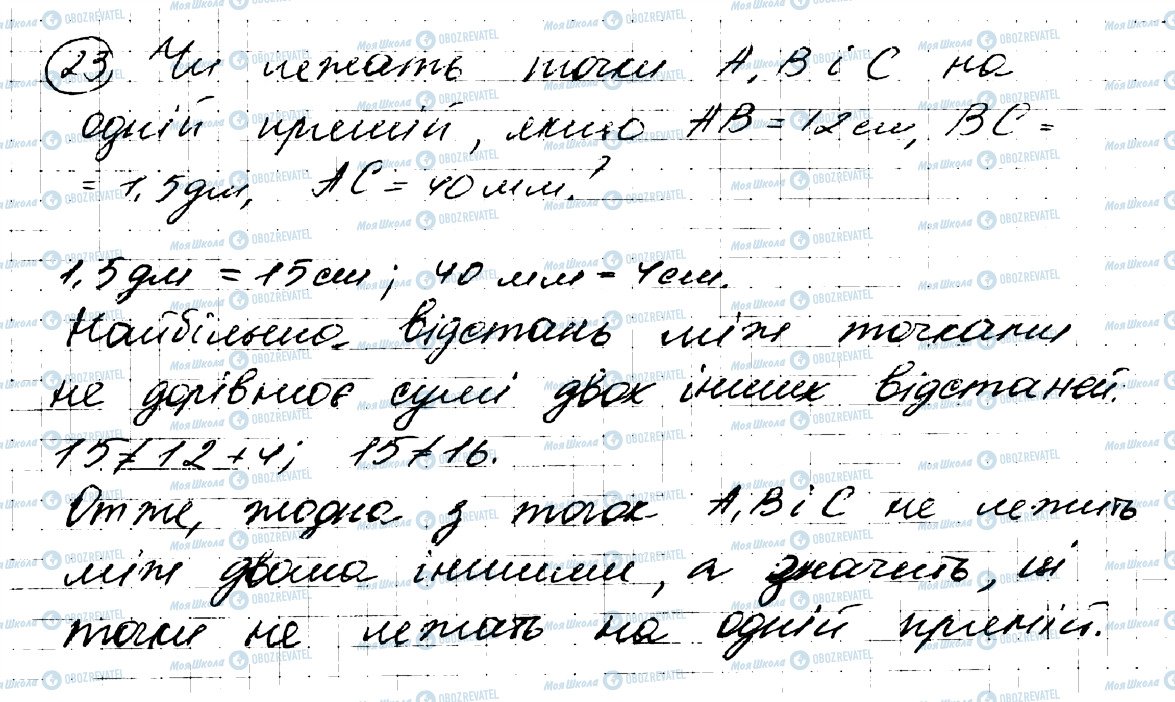 23, Чи лежать точки A, B і C на
одній прямій, якщо AB = 12 см, BC =
= 1,5 дм, AC = 40 мм?
1,5 дм = 15 см; 40 мм = 4 см.
Найбільша відстань між точками
не дорівнює сумі двох інших відстаней.
15 ≠ 12 + 4; 15 ≠ 16.
Отже, жодна з точок A, B і C не лежить
між двома іншими, а значить, ці
точки не лежать на одній прямій.